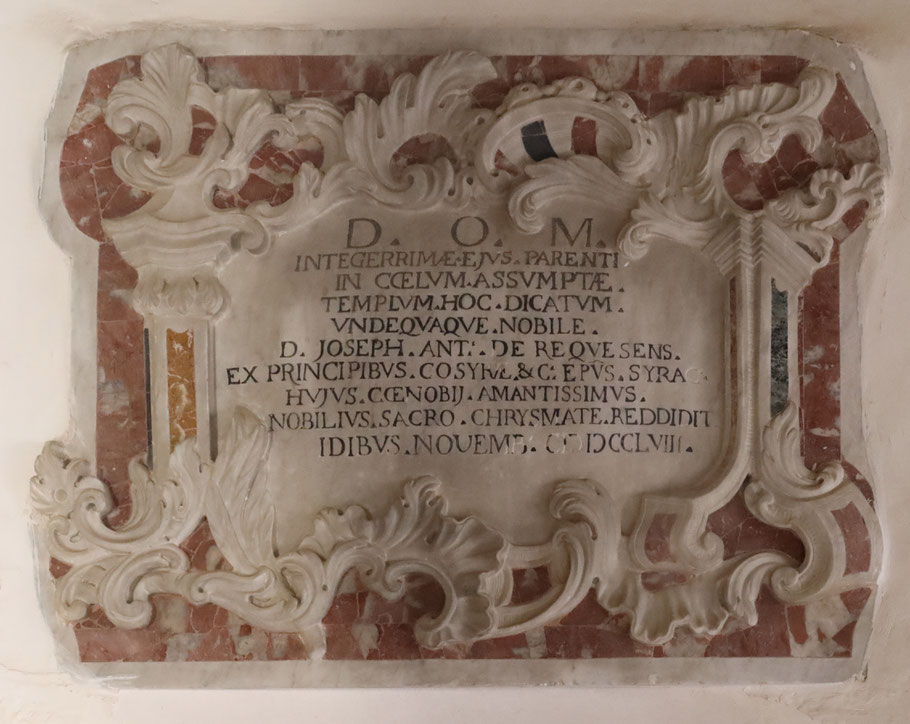 D. O. M.
INTEGERRIMÆ·EJVS·PARENTI
IN CŒLVM·ASSVMPTÆ
TEMPLVM·HOC·DICATVM·
VNDEQVAQVE·NOBILE·
D. JOSEPH·ANT:·DE REQVESENS·
EX PRINCIPIBVS·&·C·EPVS·SYRAC
HVJVS·CŒNOBIJ·AMANTISSIMVS·
NOBILIVS·SACRO·CHRYSMATE·REDDIDIT
IDIBVS·NOUEMB